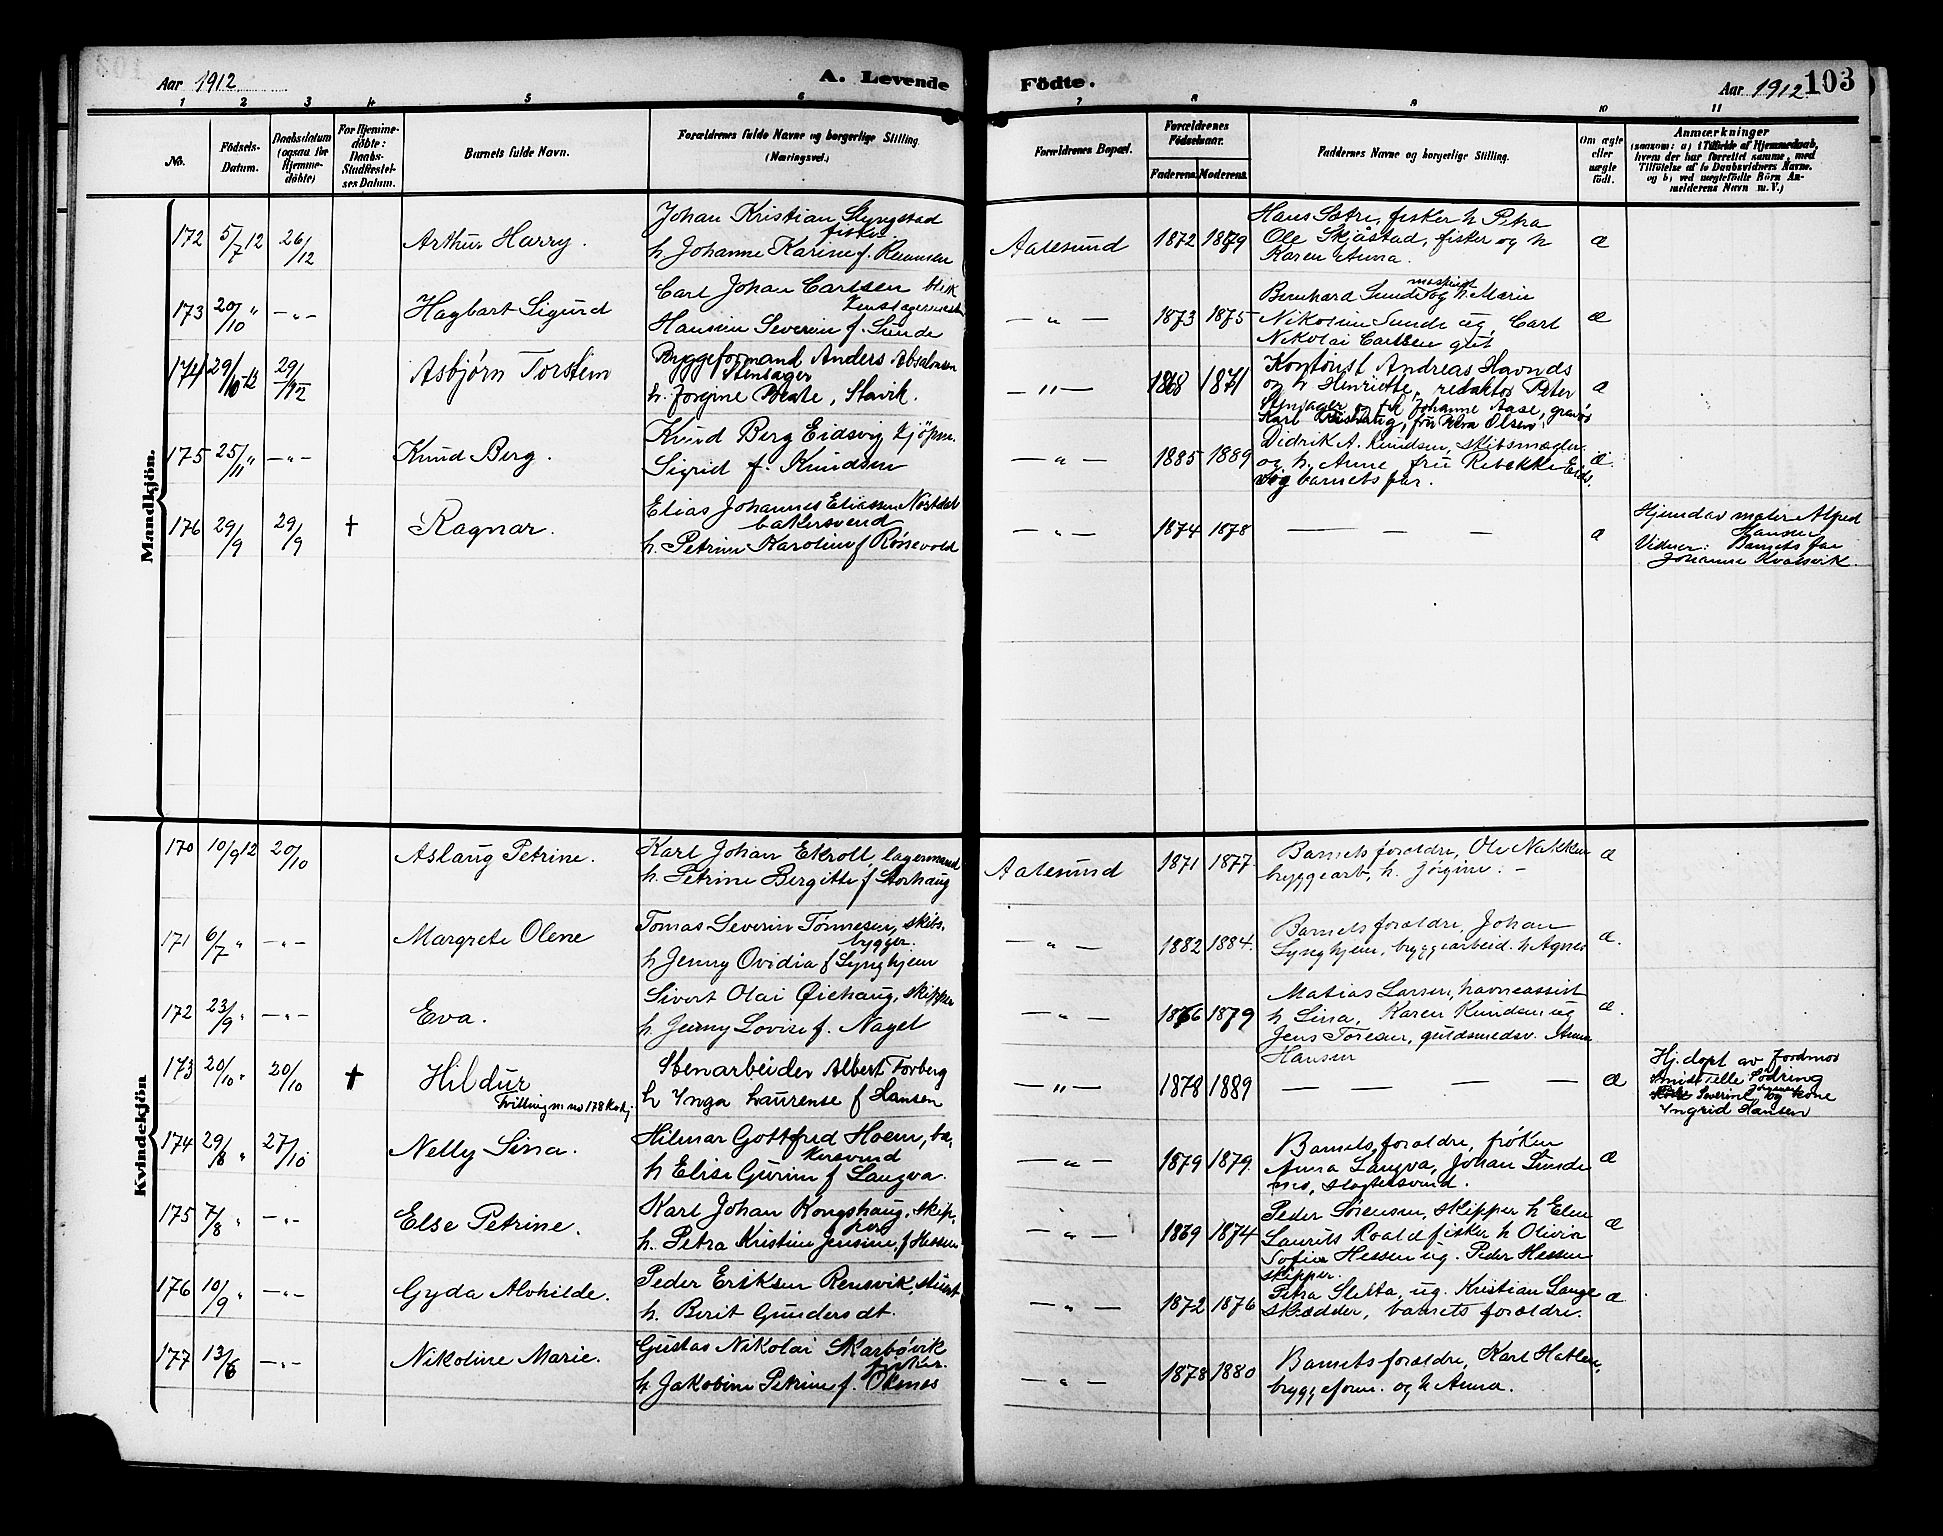 Aar 1912
A. Levende
Födte.
Aar 1912
103
1 2 3 4 5 6 7 8 9 10 11
No.
Födsels-
Datum.
Daabsdatum
(ogsaa for
Hjemme-
döbte)
For Hjemme-
döbte:
Daabs-
Stadfæstel-
ses Datum.
Barnets fulde Navn.
Forældrenes fulde Navne og borgerlige Stilling.
(Næringsvei.)
Forældrenes Bopæl.
Forældrenes
Födselsaar.
Faderens.
Moderens.
Faddernes Navne og borgerlige Stilling.
Om ægte
eller
uægte
födt.
Anmærkninger
(saasom: a) i Tilfælde af Hjemmedaab,
hvem der har forrettet samme, med
Tilföielse af to Daabsvidners Navne,
og b) ved uægtefödte Börn An-
melderens Navn m. V.)
Mandkjön.
172 5/7 12 26/12 Arthur Harry.
Johan Kristian Slyngstad
fisker
h Johanne Karine f. Remmen
Aalesund 1872 1879
Hans Sætre, fisker h Petra
Ole Skjåstad, fisker og h
Karen Anna.
æ
173 20/10 " — " — Hagbart Sigurd
Carl Johan Carlsen blik
Hansine Severine f. Sunde
— " — 1873 1875
Bernhard Sunde og h. Marie
Nikoline Sunde ug, Carl
Nikolai Carlsen gut
æ
174 29/10-12 29/-12 Asbjørn Torstein
Byggeformand Anders Absalonsen
Stensager
h. Jorgine Beate, Slavik.
— " — 1868 1871
Kontorist Andreas Havnds
og h Henriette, redaktør Peter
Stensager og frk Johanne Aase, gravør
æ
175 25/11 " — " — Knud Berg.
Knud Berg Eidsvig kjøpm.
Sigrid f. Knudsen
— " — 1885 1889
Didrik A. Knudsen, skibsmægler
og h. Anne, fru Rebekka Eids
vig barnets far.
æ
176 29/9 29/9 † Ragnar.
Elias Johannes Eliassen Nøstdal
bakersvend
h. Petrine Karoline f Rønsevold
— " — 1874 1878 — — — æ
Hjemdøv maler Alfred
Hansen
Vidner: Barnets far
Johanna Kvalsvik.
Kvindekjön
170 10/9 12 20/10 Aslaug Petrine.
Karl Johan Ekroll, lagermand
h. Petrine Bergitte f Storhaug
Aalesund 1871 1877
Barnets forældre, Ole Nakken
byggearb, h. Jørgine. –
æ
171 6/7 " — " — Margrete Olene
Tomas Severin Tønnesen, skibs-
bygger.
h Jenny Ovidia f Lynghjem
— " — 1882 1884.
Barnets forældre, Johan
Lynghjem, byggearbeid. h Agnes
æ.
172 23/9 " — " — Eva.
Sivert Olai Øiehaug, skipper
h. Jenny Lovise f. Nagel
— " — 1876 1879
Matias Larsen, havneassist
h Lina, Karen Knudsen ug
Jens Toresen, guldsmedsv. Anna
Hansen
æ.
173 20/10 " 20/10 † Hildur
Tvilling m no 178 Kvkj.
Stenarbeider Albert Torberg
h Ynga Laurense f Hansen
— " — 1878 1889 — — — — æ
Hj.døpt av Jordmor
Smidt Telle Södring
Severine og kone
Yngrid Hansen
174 29/8 " 27/10 Nelly Lina.
Hilmar Gottfred Hoem, ba-
kersvend
h Elise Gurine f Langva.
— " — 1879 1879.
Barnets forældre, frøken
Anna Langva, Johan Sunde
mo, slagtersvend.
æ
175 7/8 " — " — Else Petrine.
Karl Johan Kongshaug, skip-
per
h. Petra Kristine Jensine, f Hessen
— " — 1869 1874
Peder Sørensen, skipper h Elen
Laurits Roald fisker h Olivia
Sofie Hessen ug. Peder Hessen
skipper.
æ
176 10/9 " — " — Gyda Alvhilde.
Peder Eriksen Rensvik, stuert
h. Berit Gundersdt.
— " — 1872 1876
Petra Sletta, ug. Kristian Lange
skrædder, barnets forældre.
æ
177 13/6 — " — Nikoline Marie.
Gustav Nikolai Skarbøvik
fisker.
h Jakobine Petrine f. Oksnes
— " — 1878 1880
Barnets forældre, Karl Hatlen,
byggeform. og h Anna.